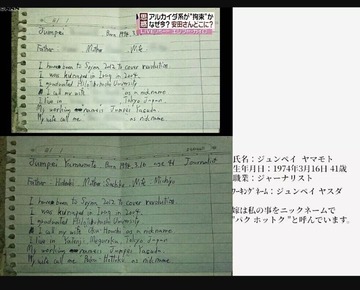 アルカイダ系が"拘束"か
なぜ今? 安田さんどこに?
Jumpei Born 1974.
Father Mother Wife
I have been to Syria 2012 to cover revolution
I was kidnaped in Iraq in 2004.
I graduated Hitotsubashi University
I call my wife as a nickname
I live in Tokyo Japan
My working name is Jumpei Yasuda
My wife call me as nickname.
Jumpei Yamamoto Born 1974. 3.16 Journalist
Father - Hideaki Mother Sachiko Wife
I have been to Syria 2012 to cover revolution
I was kidnaped in Iraq in 2004.
I graduated Hitotsubashi University
I call my wife as a nickname
I live in Tokyo Japan
My working name is Jumpei Yasuda.
My wife call me as nickname.
氏名：ジュンペイ ヤマモト
生年月日：1974年3月16日 41歳
職業：ジャーナリスト
ﾜｰｷﾝｸﾞﾈｰﾑ：ジュンペイ ヤスダ
嫁は私の事をニックネームで
"パク ホットク"と呼んでいます。